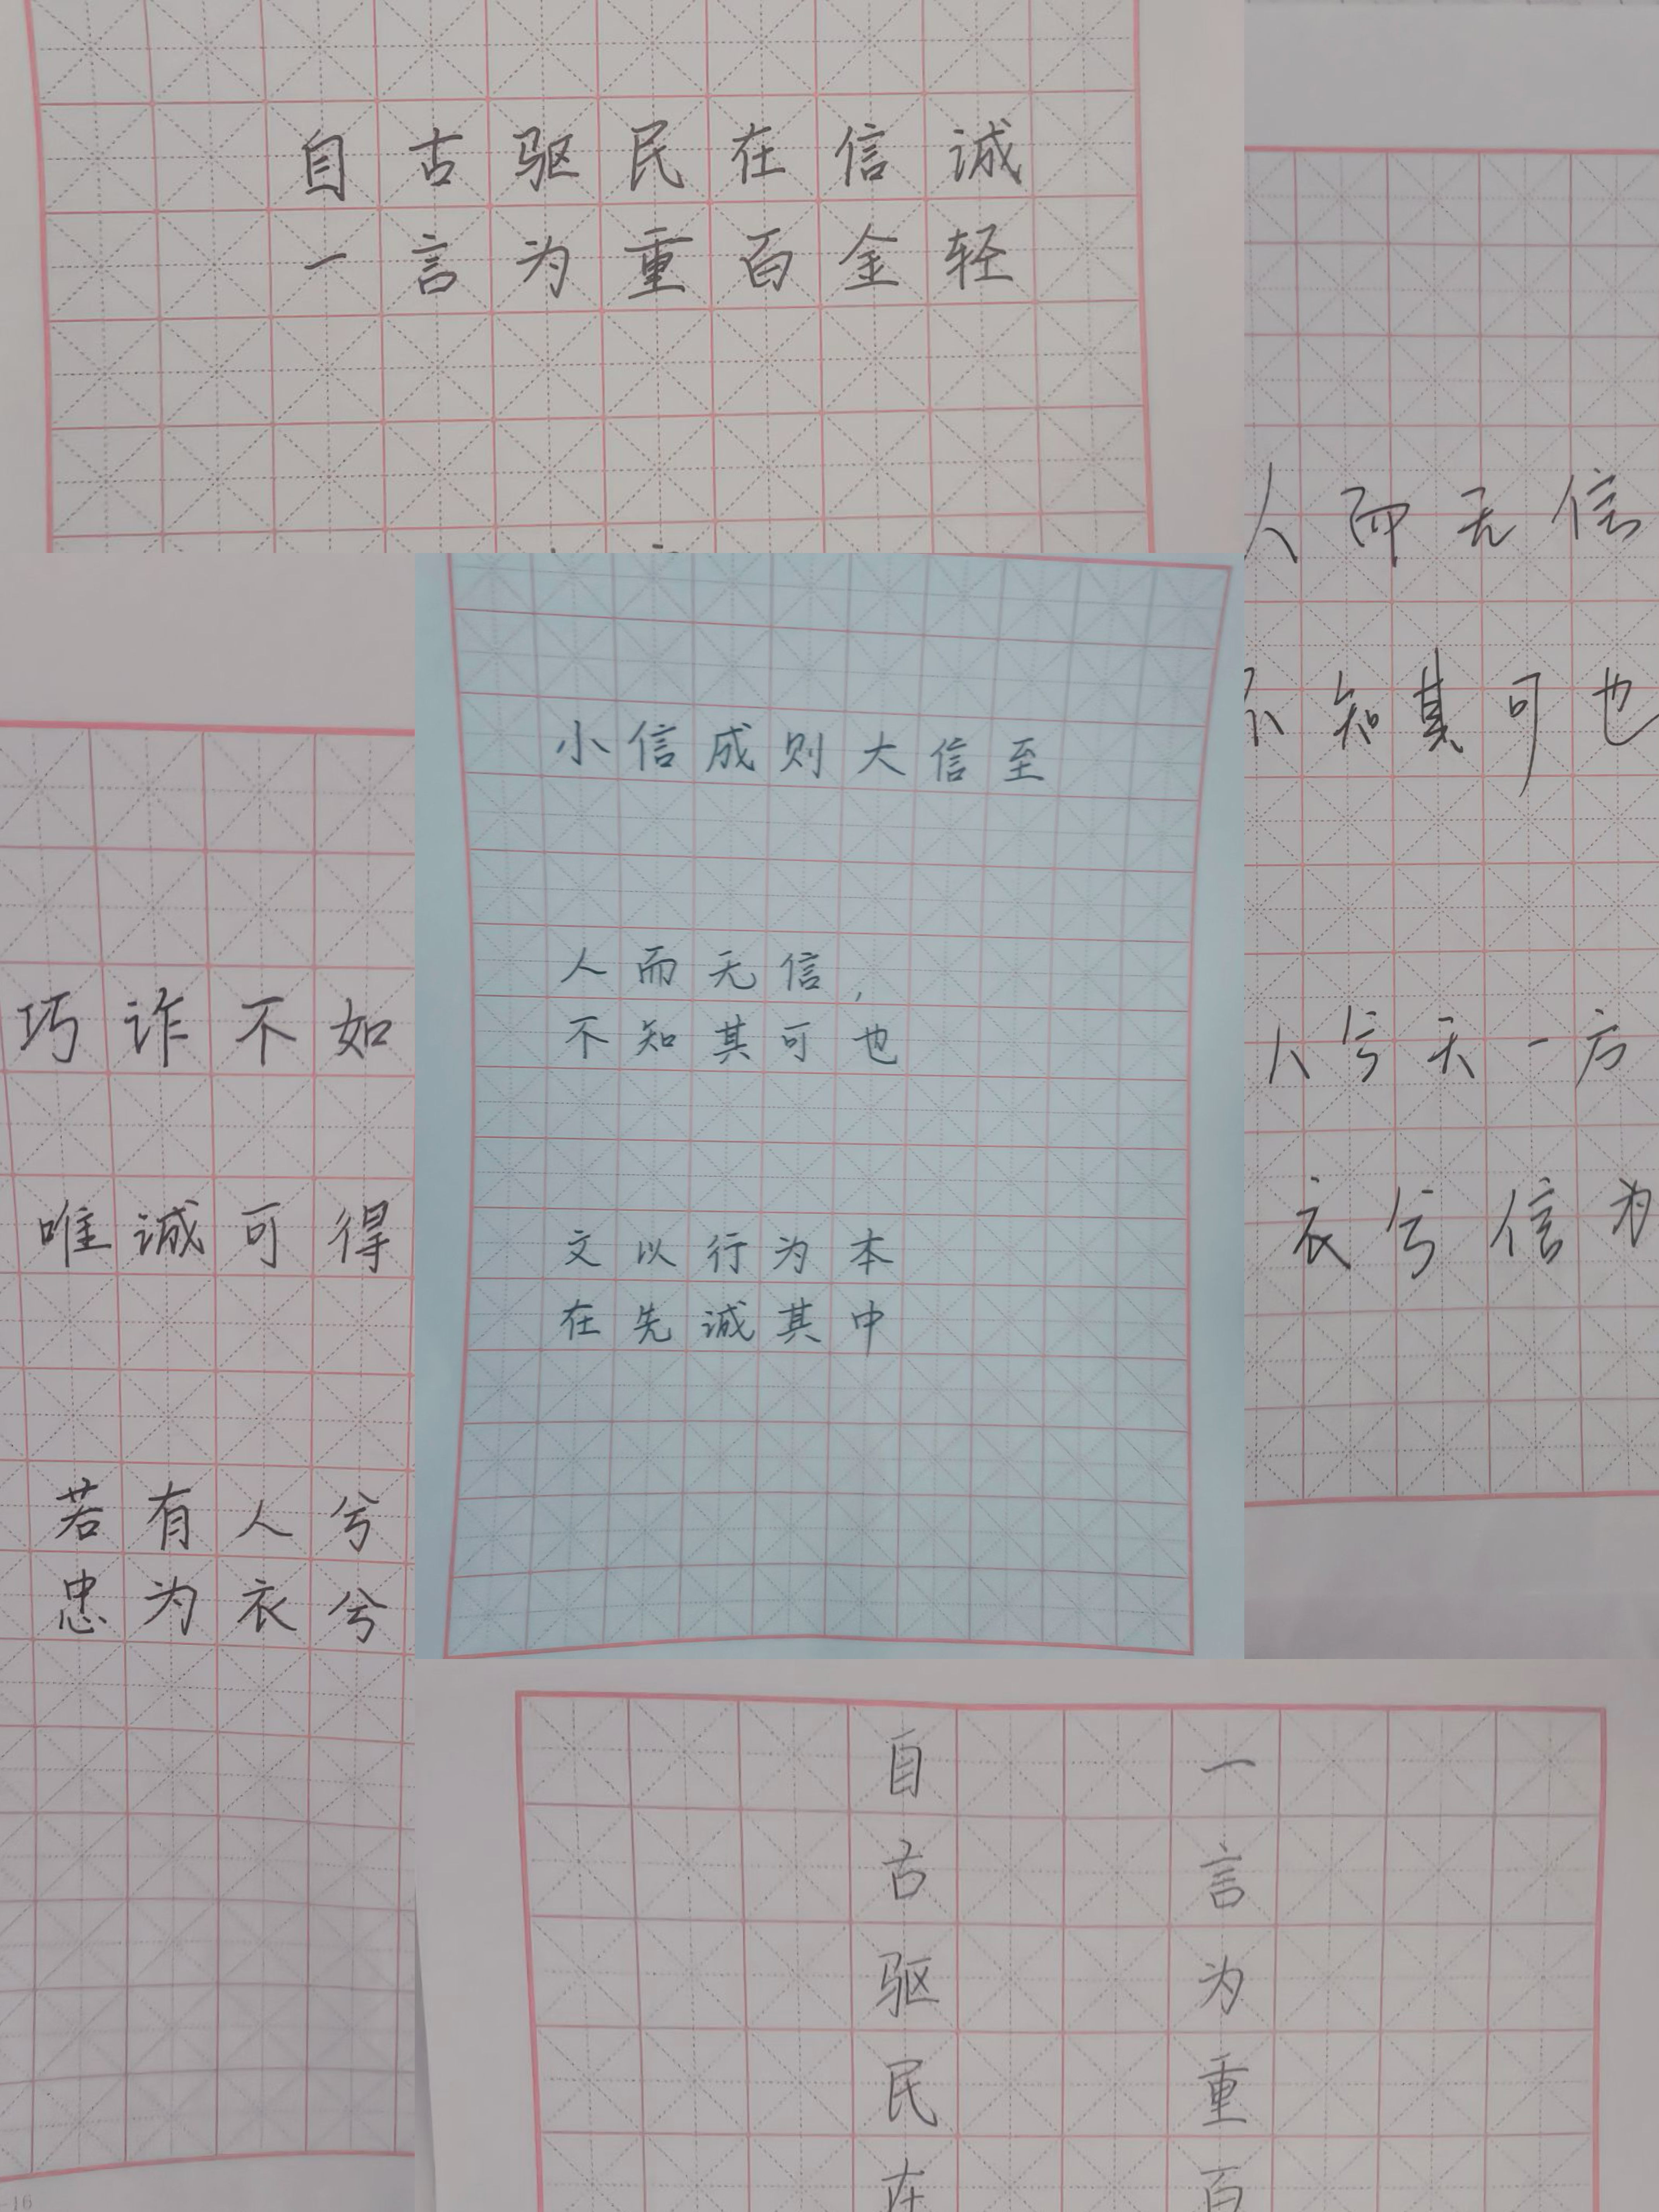 自古驱民在信诚
一言为重百金轻
人而无信
不知其可也
人兮天一方
衣兮信为
小信成则大信至
人而无信,
不知其可也
文以行为本
在先诚其中
巧诈不如
唯诚可得
若有人兮
忠为衣兮
自古驱民在
一言为重百
-16